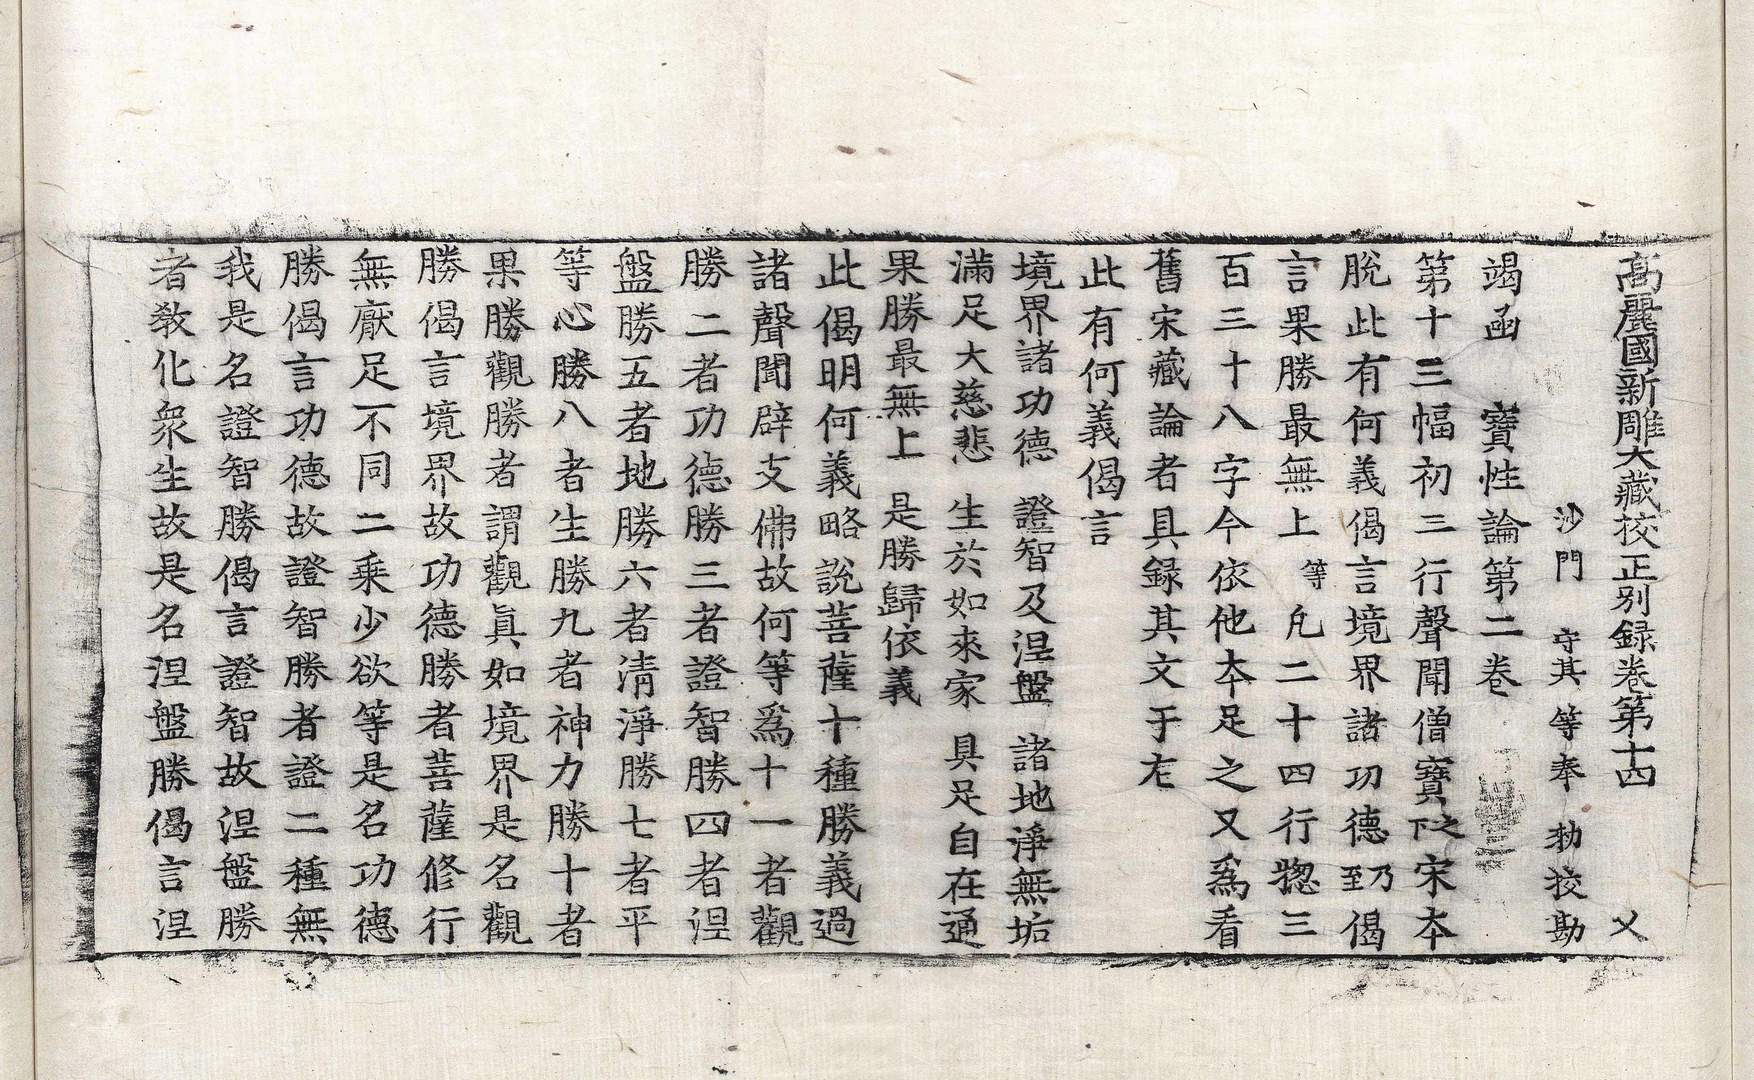 高麗國新雕大藏校正別録卷第十四 乂
沙門 守其 等奉 勑挍勘
竭函 寶性論第二卷
第十三幅初三行聲聞僧寶之下宋夲
脫此有何義偈言境界諸功德乃至偈
言果勝最無上等凢二十四行揔三
百三十八字今依他夲足之又爲看
舊宋藏論者具録其文于左
此有何義偈言
境界諸功德 證智及涅盤 諸地淨無垢
滿足大慈悲 生於如來家 具足自在通
果勝最無上 是勝歸依義
此偈明何義略說菩薩十種勝義過
諸聲聞辟支佛故何等爲十一者觀
勝二者功德勝三者證智勝四者涅
盤勝五者地勝六者清淨勝七者平
等心勝八者生勝九者神力勝十者
果勝觀勝者謂觀眞如境界是名觀
勝偈言境界故功德勝者菩薩修行
無厭足不同二乘少欲等是名功德
勝偈言功德故證智勝者證二種無
我是名證智勝偈言證智故涅盤勝
者教化衆生故是名涅盤勝偈言涅